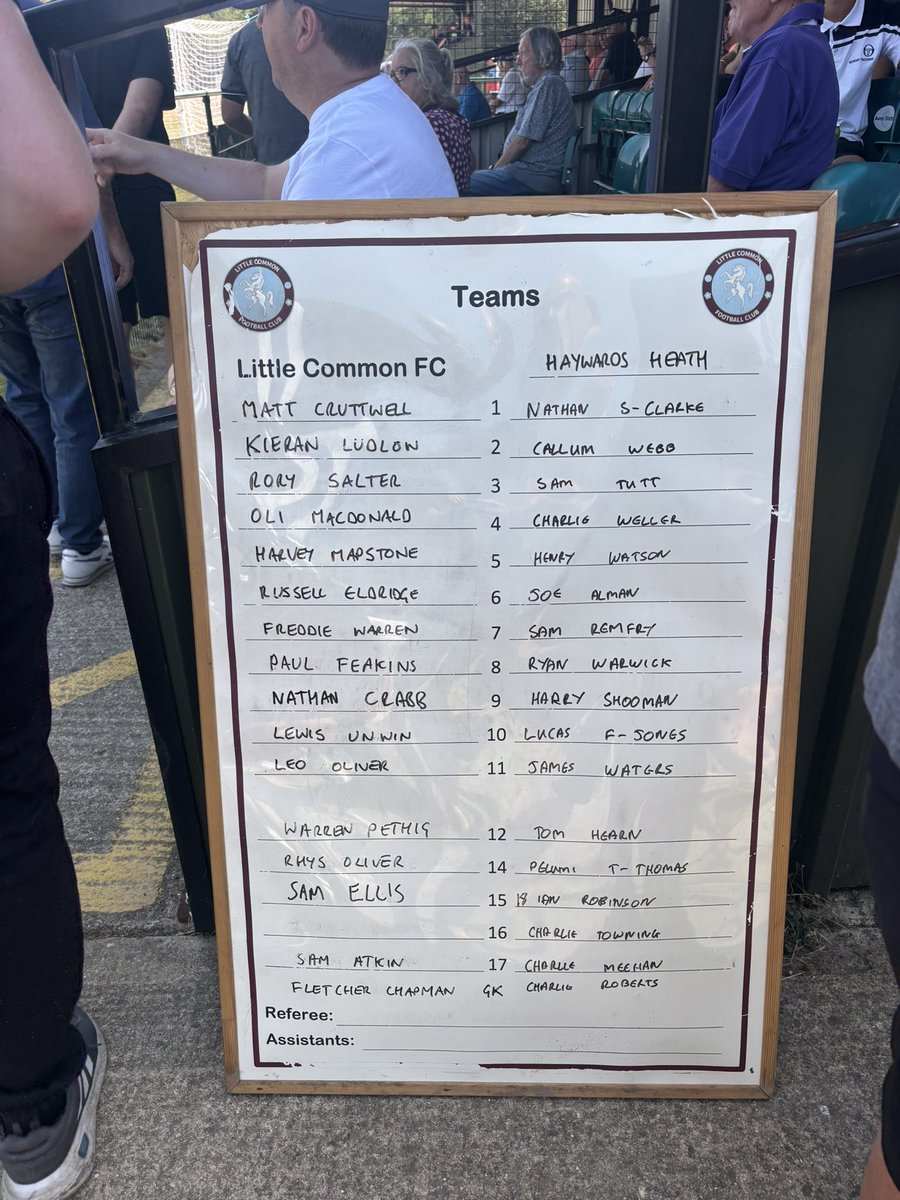 Teams
LITTLE COMMON FOOTBALL CLUB
LITTLE COMMON FOOTBALL CLUB
Little Common FC HAYWARDS HEATH
MATT CRUTTWELL 1 NATHAN S-CLARKE
KIERAN LUDLOW 2 CALLUM WEBB
RORY SALTER 3 SAM TUTT
OLI MACDONALD 4 CHARLIE WELLER
HARVEY MAPSTONE 5 HENRY WATSON
RUSSELL ELDRIDGE 6 JOE ALMAN
FREDDIE WARREN 7 SAM REMFRY
PAUL FEAKINS 8 RYAN WARWICK
NATHAN CRABB 9 HARRY SHOOMAN
LEWIS UNWIN 10 LUCAS F-JONES
LEO OLIVER 11 JAMES WATERS
WARREN PETHIG 12 TOM HEARN
RHYS OLIVER 14 PELUMI T-THOMAS
SAM ELLIS 15 18 IAN ROBINSON
16 CHARLIE TOWNING
SAM ATKIN 17 CHARLIE MEEHAN
FLETCHER CHAPMAN GK CHARLIE ROBERTS
Referee:
Assistants: